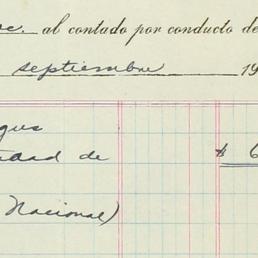 al contado por conducto de
septiembre 19
dad de
$ 6
Nacional)